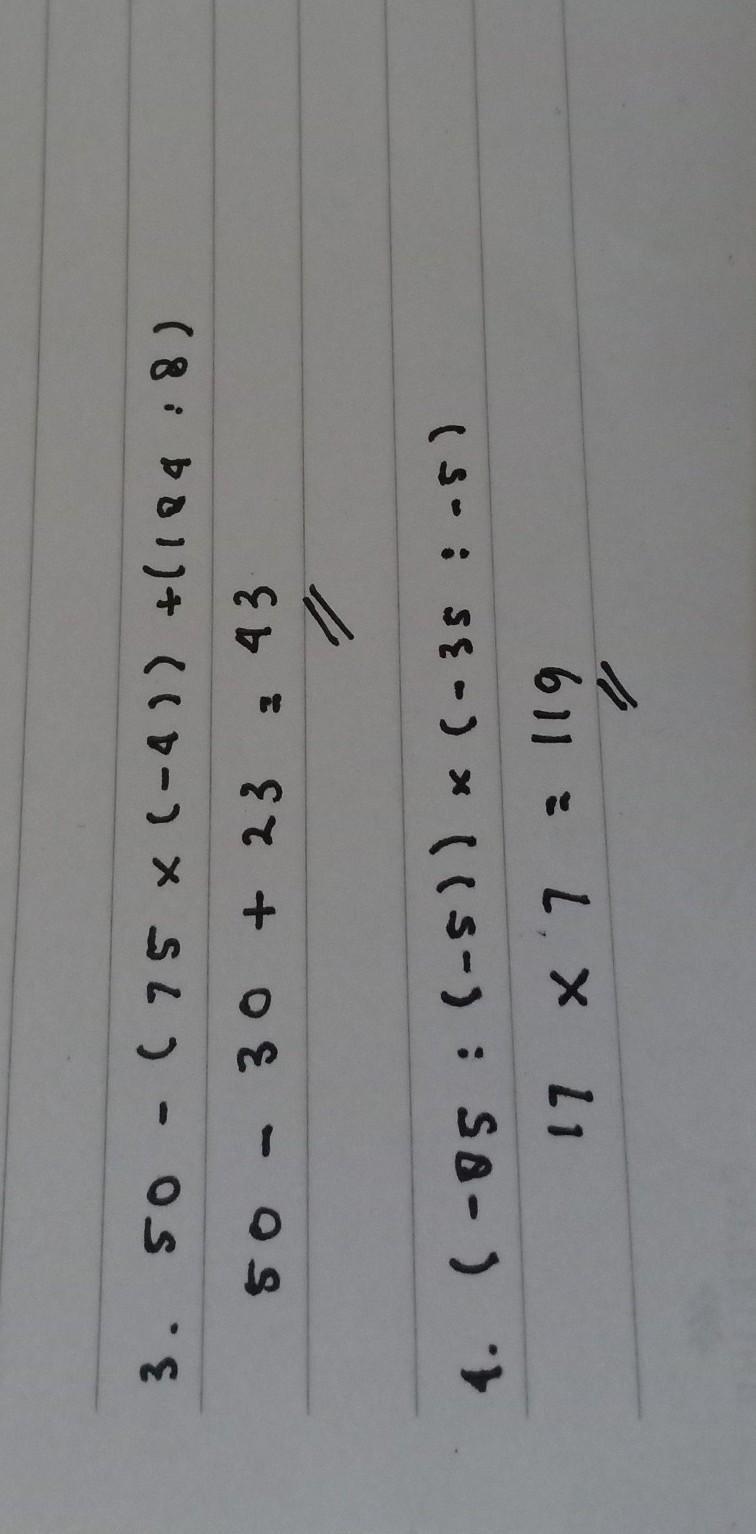 3. 50 - (75 x (-4)) + (184 : 8)
50 - 30 + 23 = 43
4. (-85 : (-5)) x (-35 : -5)
17 x 7 = 119